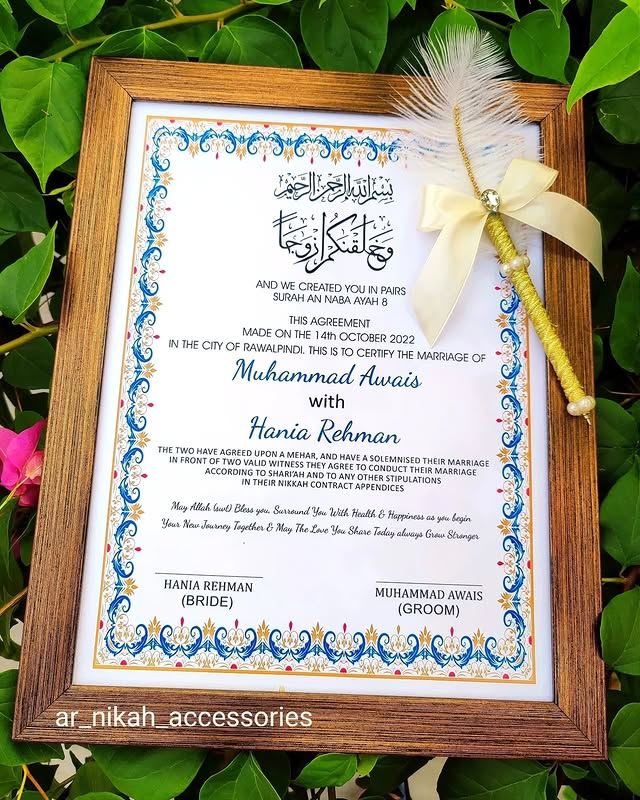 بسم الله الرحمن الرحيم
وخلقنكم أزوجا
AND WE CREATED YOU IN PAIRS
SURAH AN NABA AYAH 8
THIS AGREEMENT
MADE ON THE 14th OCTOBER 2022
IN THE CITY OF RAWALPINDI. THIS IS TO CERTIFY THE MARRIAGE OF
Muhammad Awais
with
Hania Rehman
THE TWO HAVE AGREED UPON A MEHAR, AND HAVE A SOLEMNISED THEIR MARRIAGE
IN FRONT OF TWO VALID WITNESS THEY AGREE TO CONDUCT THEIR MARRIAGE
ACCORDING TO SHARI'AH AND TO ANY OTHER STIPULATIONS
IN THEIR NIKKAH CONTRACT APPENDICES
May Allah (swt) Bless you, Surround You With Health & Happiness as you begin
Your New Journey Together & May The Love You Share Today always Grow Stronger
HANIA REHMAN
(BRIDE)
MUHAMMAD AWAIS
(GROOM)
ar_nikah_accessories